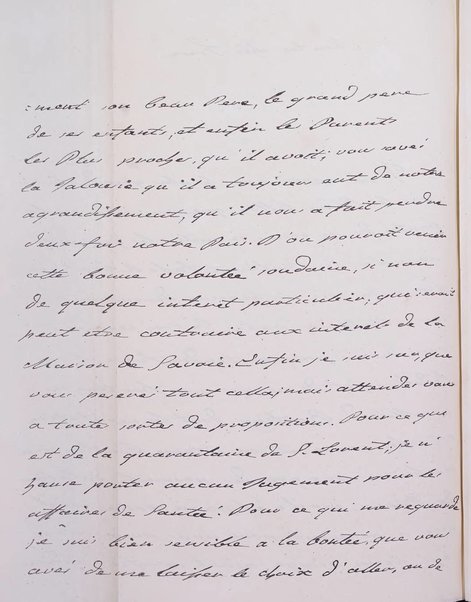 :ment son beau Pere, le grand pere
de ses enfants, et enfin le Parents
les Plus proche, qu'il avoit; vous savés
la Jalousie qu'il a toujour eut de notre
agrandissement, qu'il nous a fait perdre
deux-foi notre Pais. D'ou pouroit venir
cette bonne volontée soudaine, si non
de quelque interet particulier, qui seroit
peut etre contraire aux interets de la
Maison de Savoie. Enfin je suis sur que
vous peserés tout cella, mais attendes vous
a toute sortes de propositions. Pour ce que
est de la quarantaine de St. Lorent, je n'
hause porter aucun Jugement pour les
affaires de Santée. Pour ce qui me regarde
je suis bien sensible a la bontée, que vous
avés de me laisser le choix d'aller, ou de